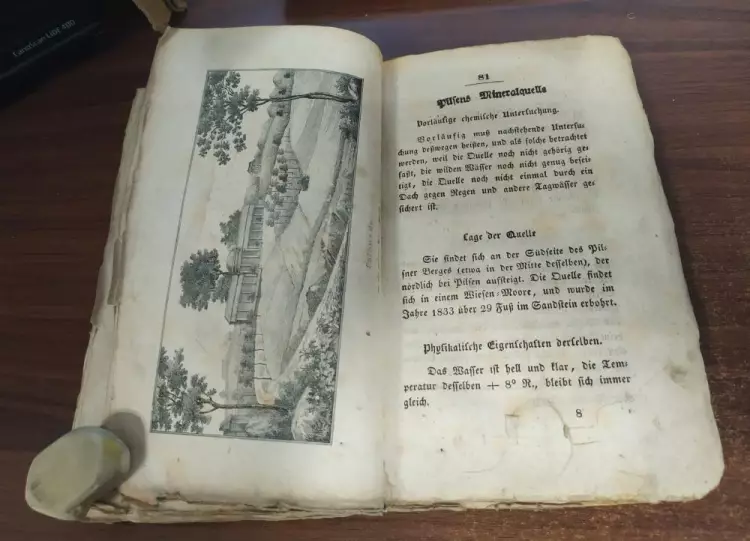 CanoScan LiDE 400
81
Pilsens Mineralquelle
Vorläufige chemische Untersuchung.
Vorläufig muß nachstehende Untersu-
chung deßwegen heißen, und als solche betrachtet
werden, weil die Quelle noch nicht gehörig ge-
faßt, die wilden Wässer noch nicht genug besei-
tigt, die Quelle noch nicht einmal durch ein
Dach gegen Regen und andere Tagwässer ge-
sichert ist.
Lage der Quelle
Sie findet sich an der Südseite des Pil-
sner Berges (etwa in der Mitte desselben), der
nördlich bei Pilsen aufsteigt. Die Quelle findet
sich in einem Wiesen-Moore, und wurde im
Jahre 1833 über 29 Fuß im Sandstein erbohrt.
Physikalische Eigenschaften derselben.
Das Wasser ist hell und klar, die Tem-
peratur desselben + 8° R., bleibt sich immer
gleich.
8